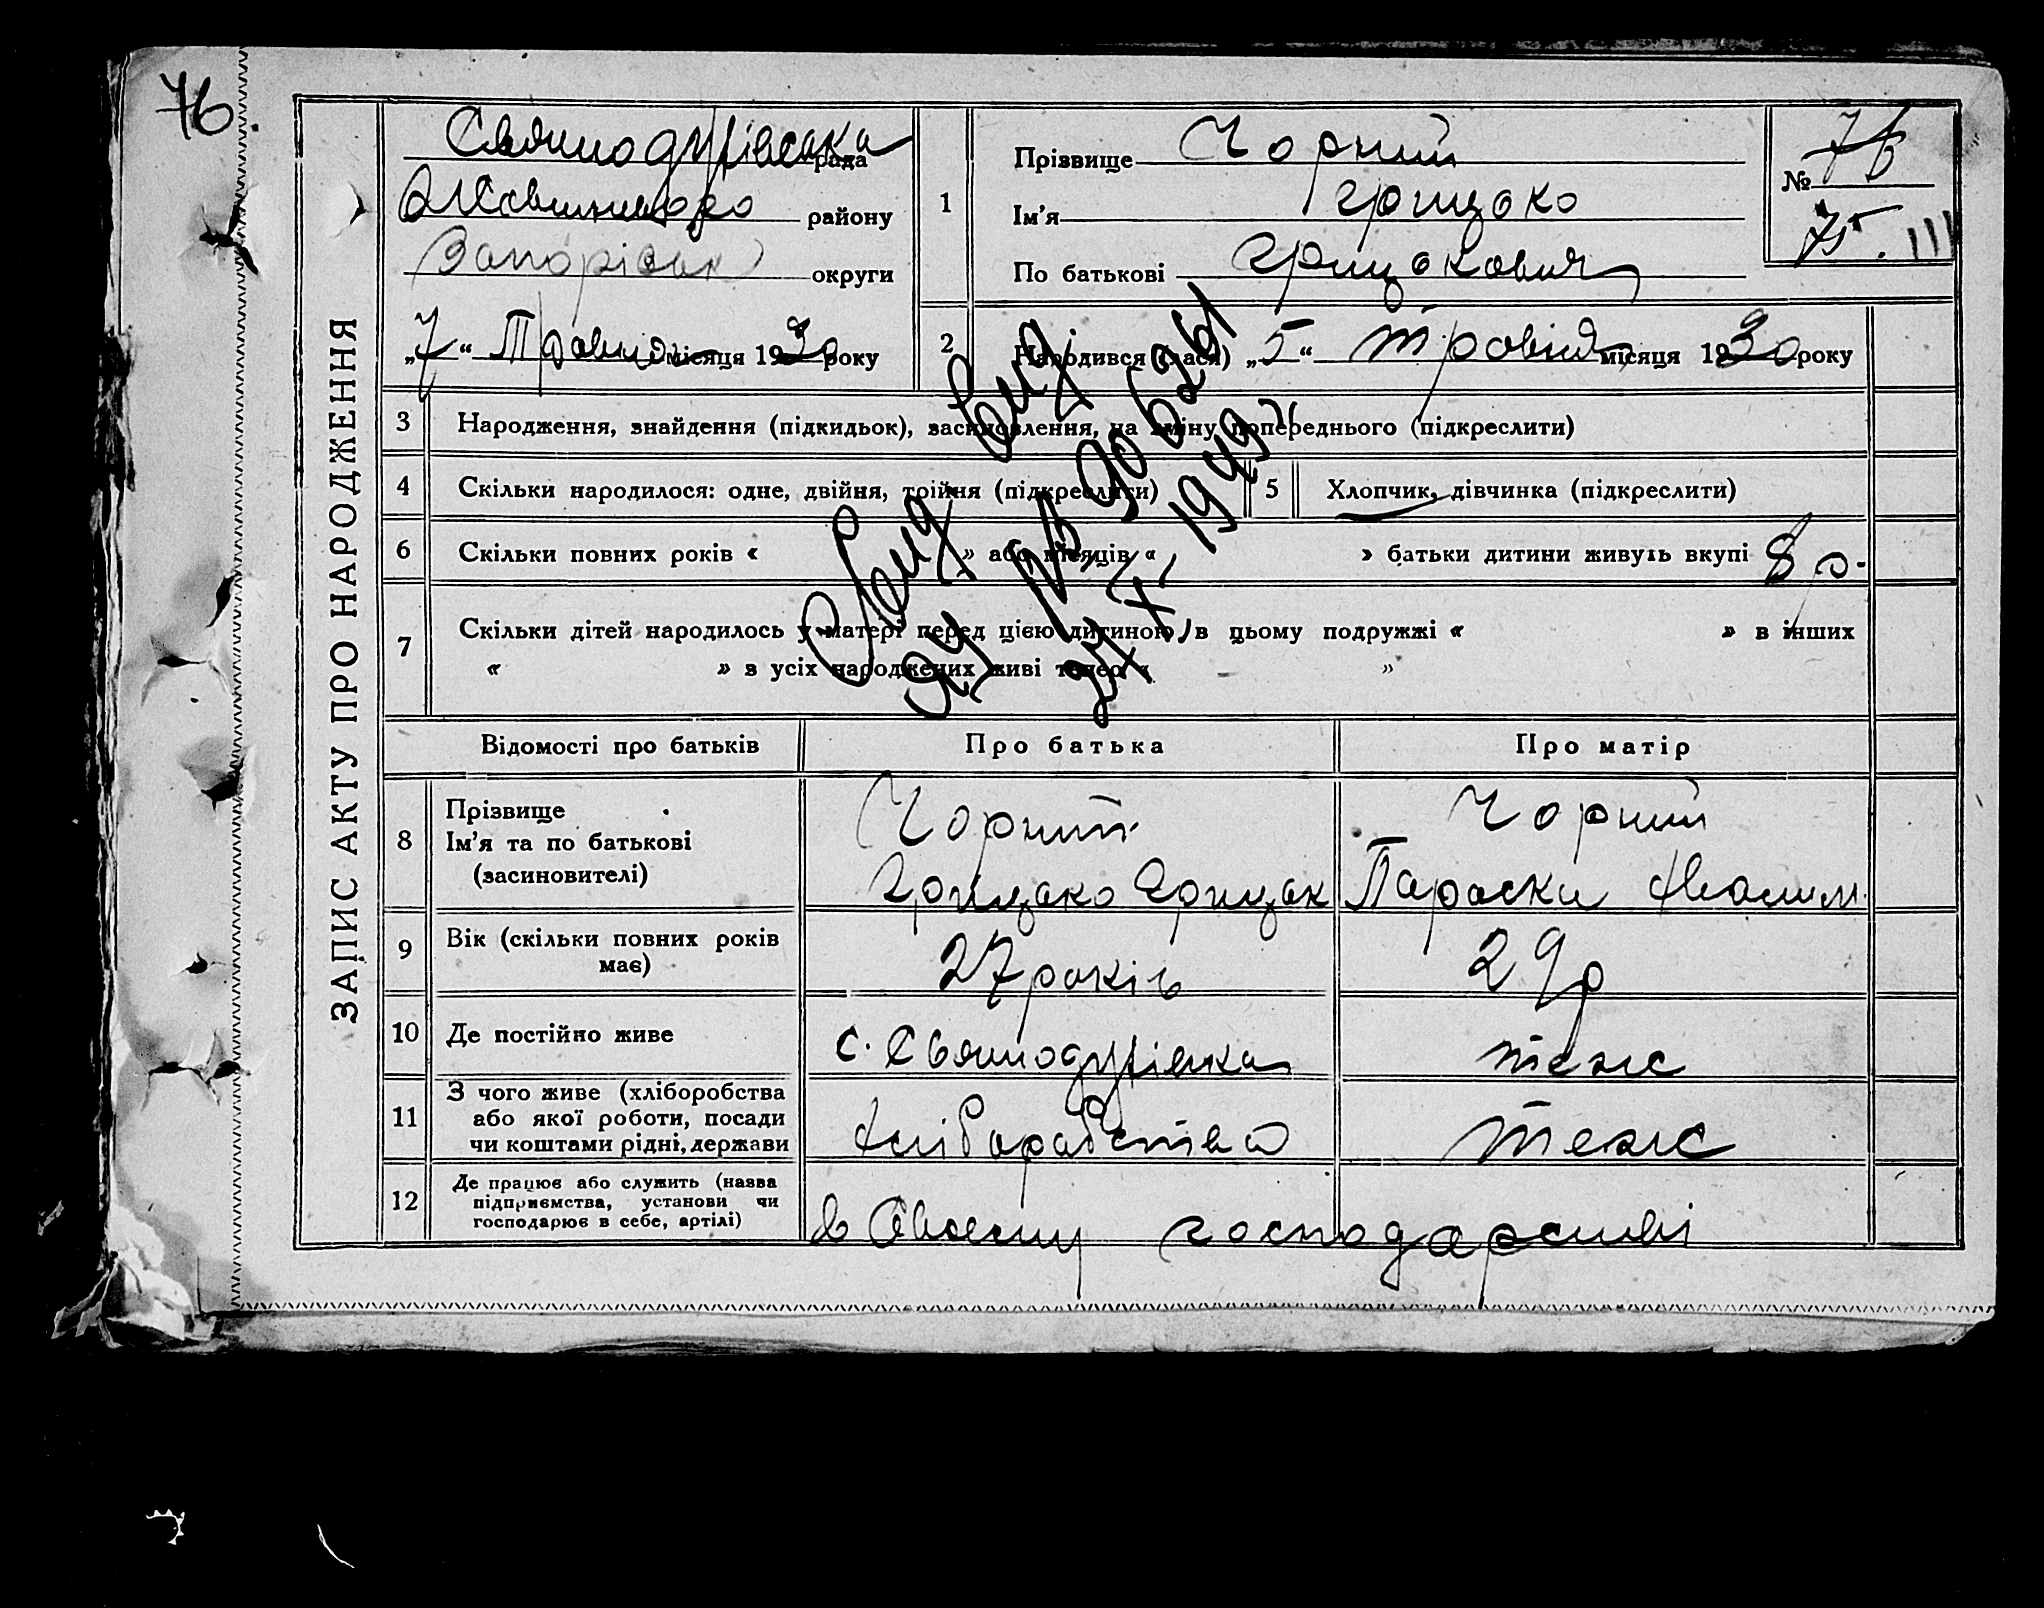 76.
ЗАПИС АКТУ ПРО НАРОДЖЕННЯ
Святодухівська рада
району
Запорізьк округи
„7“ Травня місяця 1930 року
1
Прізвище Чорний
Ім'я Грицько
По батькові Грицькович
№ 76
75. III
2
Народився (лася) „5“ травня місяця 1930 року
3 Народження, знайдення (підкидьок), засиновлення, на зміну попереднього (підкреслити)
4 Скільки народилося: одне, двійня, трійня (підкреслити)
5 Хлопчик, дівчинка (підкреслити)
6 Скільки повних років « » або місяців « » батьки дитини живуть вкупі 8 р.
7 Скільки дітей народилось у матері перед цією дитиною, в цьому подружжі « » в інших
« » в усіх народжених живі тепер « »
1949
Відомості про батьків
Про батька
Про матір
8 Прізвище
Ім'я та по батькові
(засиновителі)
Чорний
Грицько Грицьк
Чорний
Параски
9 Вік (скільки повних років
має)
27 років
29 р
10 Де постійно живе
с. Святодухівка
теж
11 З чого живе (хліборобства
або якої роботи, посади
чи коштами рідні, держави
хліборобство
теж
12 Де працює або служить (назва
підприємства, установи чи
господарює в себе, артілі)
в Своєму господарстві